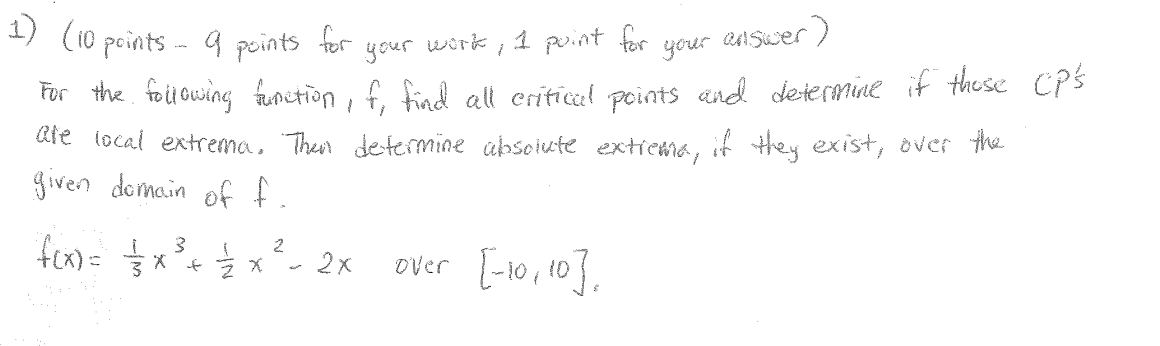 1) (10 points - 9 points for your work, 1 point for your answer)
For the following function, f, find all critical points and determine if those CP's
are local extrema. Then determine absolute extrema, if they exist, over the
given domain of f.
f(x) = 1/3 x³ + 1/2 x² - 2x over [-10, 10].